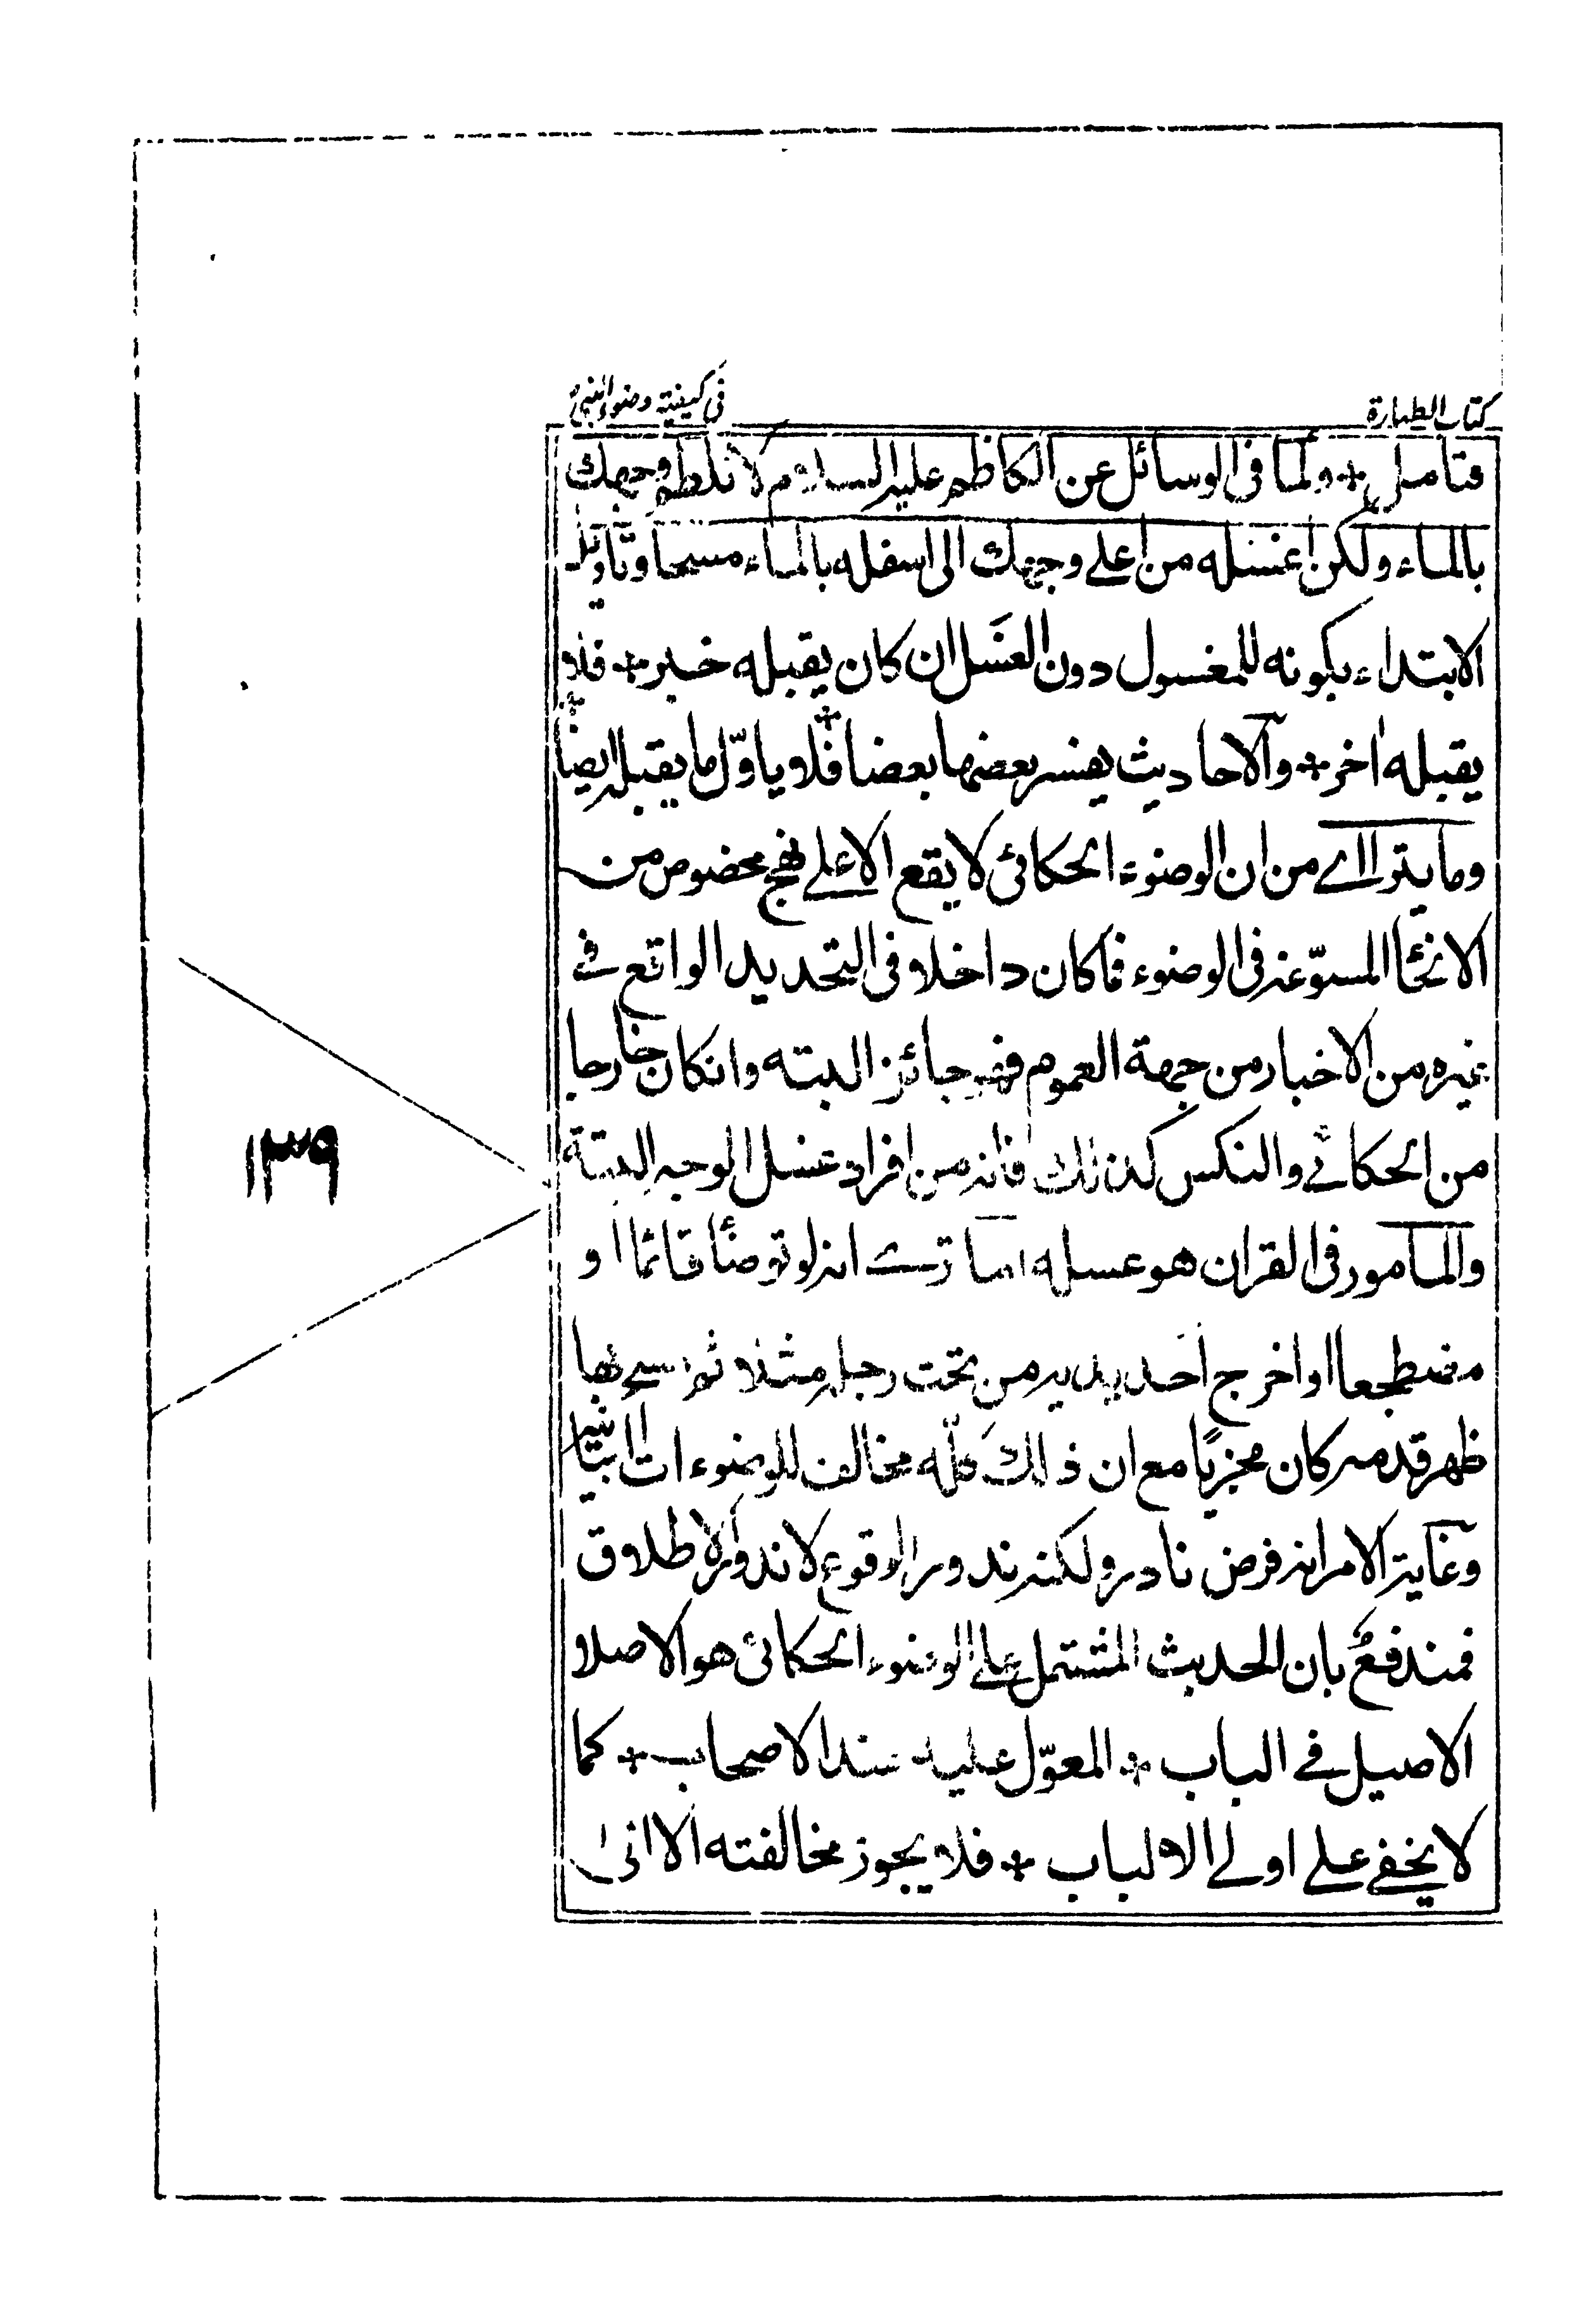 كتاب الطهارة
في كيفية وضوء النبي
فتامل + ولما في الوسائل عن الكاظم عليه السلام لا تلطم وجهك
بالماء ولكن اغسله من اعلى وجهك الى اسفله بالماء مسحا وتاويل
الابتداء بكونه للمغسول دون الغسل ان كان يقبله خبر + فلا
يقبله اخر + والاحاديث يفسر بعضها بعضا فلا ياوّل ما يقبله ايضا
وما يترااے من ان الوضوء الحكائى لا يقع الا على نهج مخصوص من
الانحٔا المسوّغه فى الوضوء فما كان داخلا فى التحديد الواقع فے
غيره من الاخبار من جهة العموم فهو جائز البته وانكان خارجا
من الحكائے والنكس كذلك فانه من افراد غسل الوجه البتة
والمامور فى القران هو غسله اما ترے انه لو توضأ قائما او
مضطجعا او اخرج احد يديه من تحت رجله مثلا ثم مسح بها
ظهر قدمه كان مجزيًا مع ان ذلك كلّه مخالف للوضوءات البيانيه
وغاية الامر انه فرض نادر ولكنه ندور الوقوع لا ندور الاطلاق
فمندفع بان الحديث المشتمل على الوضوء الحكائى هو الاصلا
الاصيل فے الباب + المعوّل عليه عند الاصحاب + كما
لا يخفے على اولے الالباب + فلا يجوز مخالفته الا انى
١٣٩